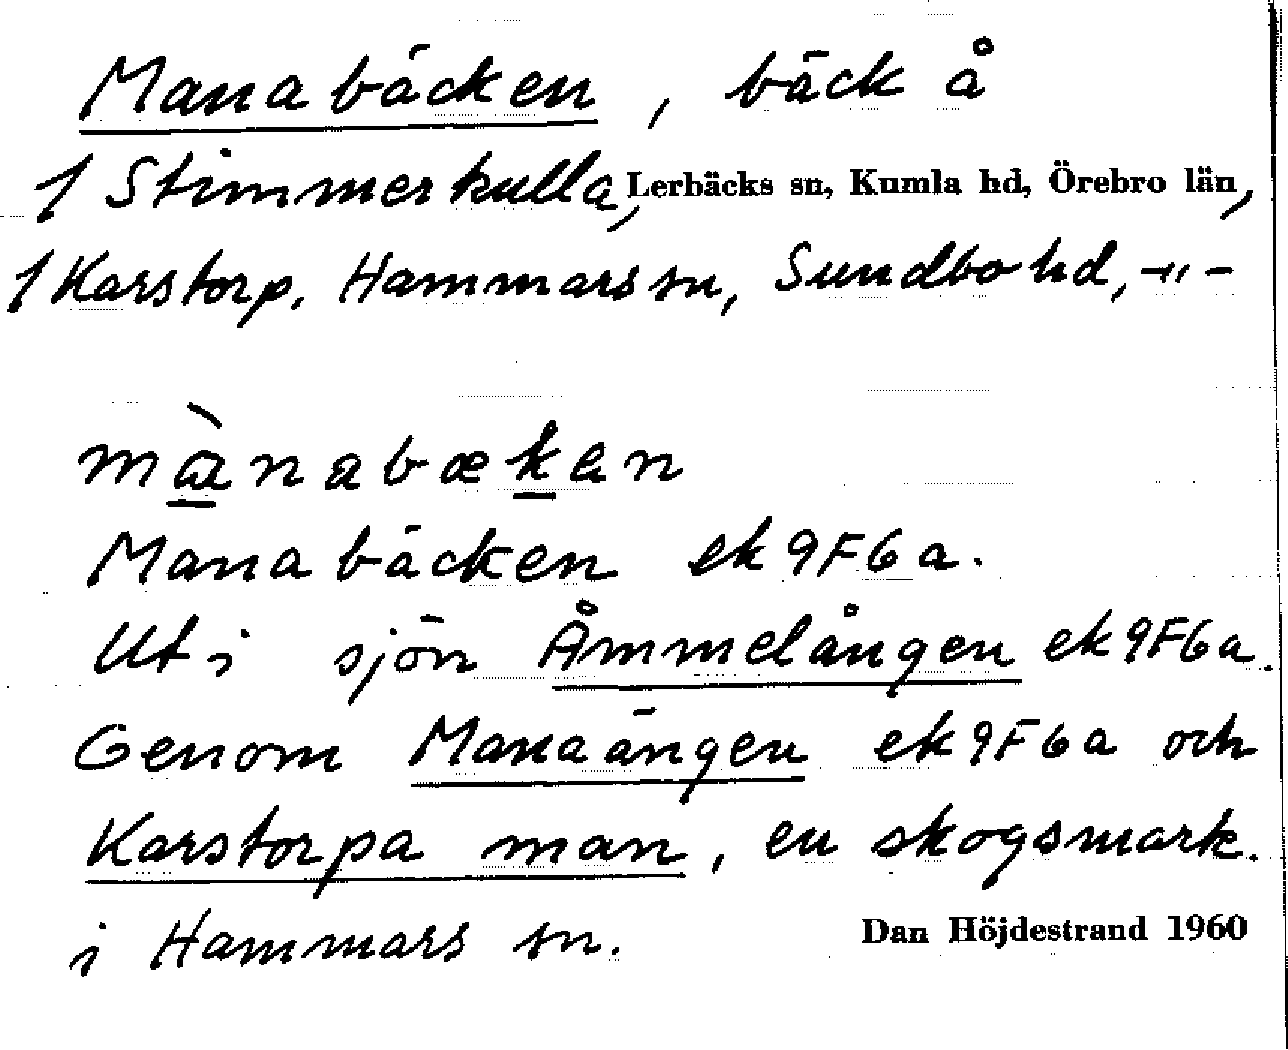 Manabäcken, bäck å
1 Stimmerkulla, Lerbäcks sn, Kumla hd, Örebro län,
1 Karstorp, Hammars sn, Sundbo hd, -"-
mànabækan
Manabäcken ek 9F6a.
Ut i sjön Åmmelången ek 9F6a.
Genom Manaängen ek 9F6a och
Karstorpa man, en skogsmark
i Hammars sn.
Dan Höjdestrand 1960